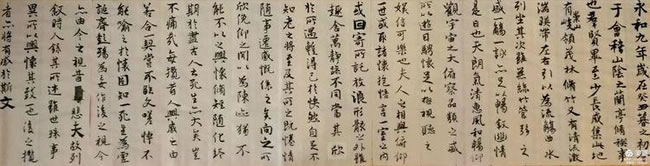 永和九年歲在癸丑暮春之初會
于會稽山陰之蘭亭脩禊事
也羣賢畢至少長咸集此地
有峻領茂林脩竹又有清流激
湍暎帶左右引以為流觴曲水
列坐其次雖無絲竹管弦之
盛一觴一詠亦足以暢敘幽情
是日也天朗氣清惠風和暢仰
觀宇宙之大俯察品類之盛
所以遊目騁懷足以極視聽之
娛信可樂也夫人之相與俯仰
一世或取諸懷抱悟言一室之內
或因寄所託放浪形骸之外雖
趣舍萬殊靜躁不同當其欣
於所遇蹔得於己怏然自足不
知老之將至及其所之既惓情
隨事遷感慨係之矣向之所
欣俛仰之閒以為陳迹猶不
能不以之興懷況脩短隨化終
期於盡古人云死生亦大矣豈
不痛哉每攬昔人興感之由
若合一契未嘗不臨文嗟悼不
能喻之於懷固知一死生為虛
誕齊彭殤為妄作後之視今
亦由今之視昔悲夫故列
敘時人錄其所述雖世殊事
異所以興懷其致一也後之攬
者亦將有感於斯文